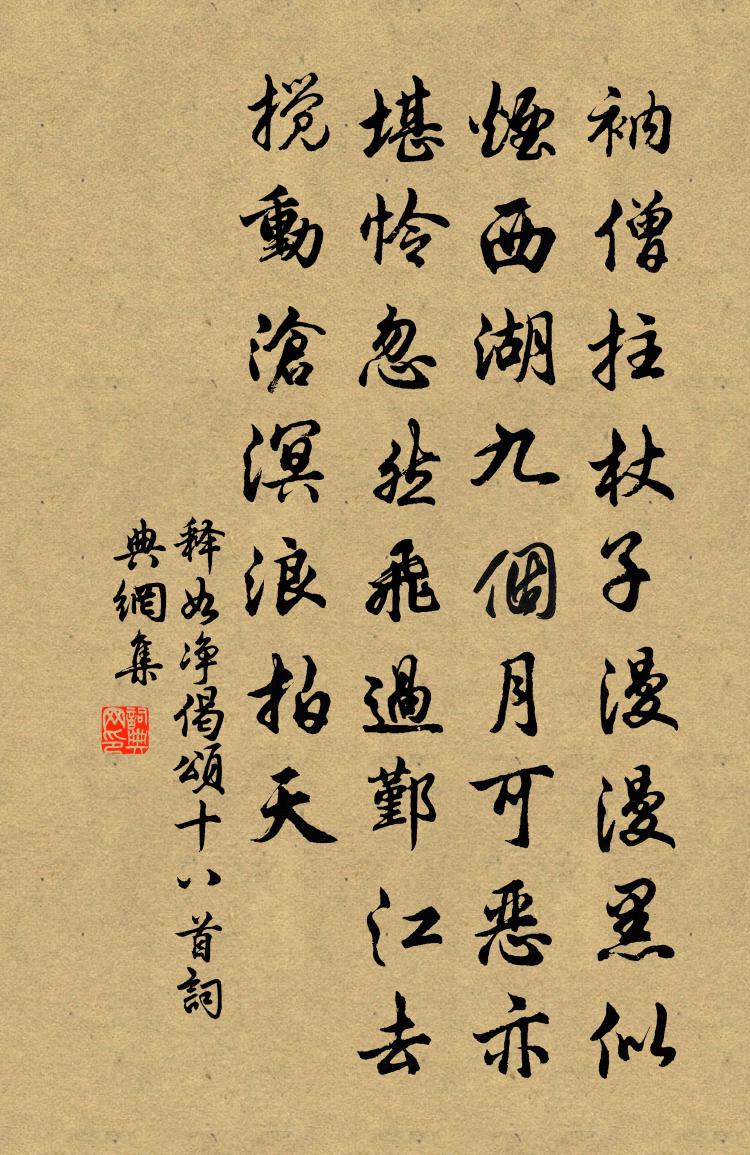 衲僧拄杖子漫漫黑似
煙西湖九個月可惡亦
堪怜忽然飛過鄞江去
搅動滄溟浪拍天
释如净偈頌十八首詞
典網集
詞典
网印